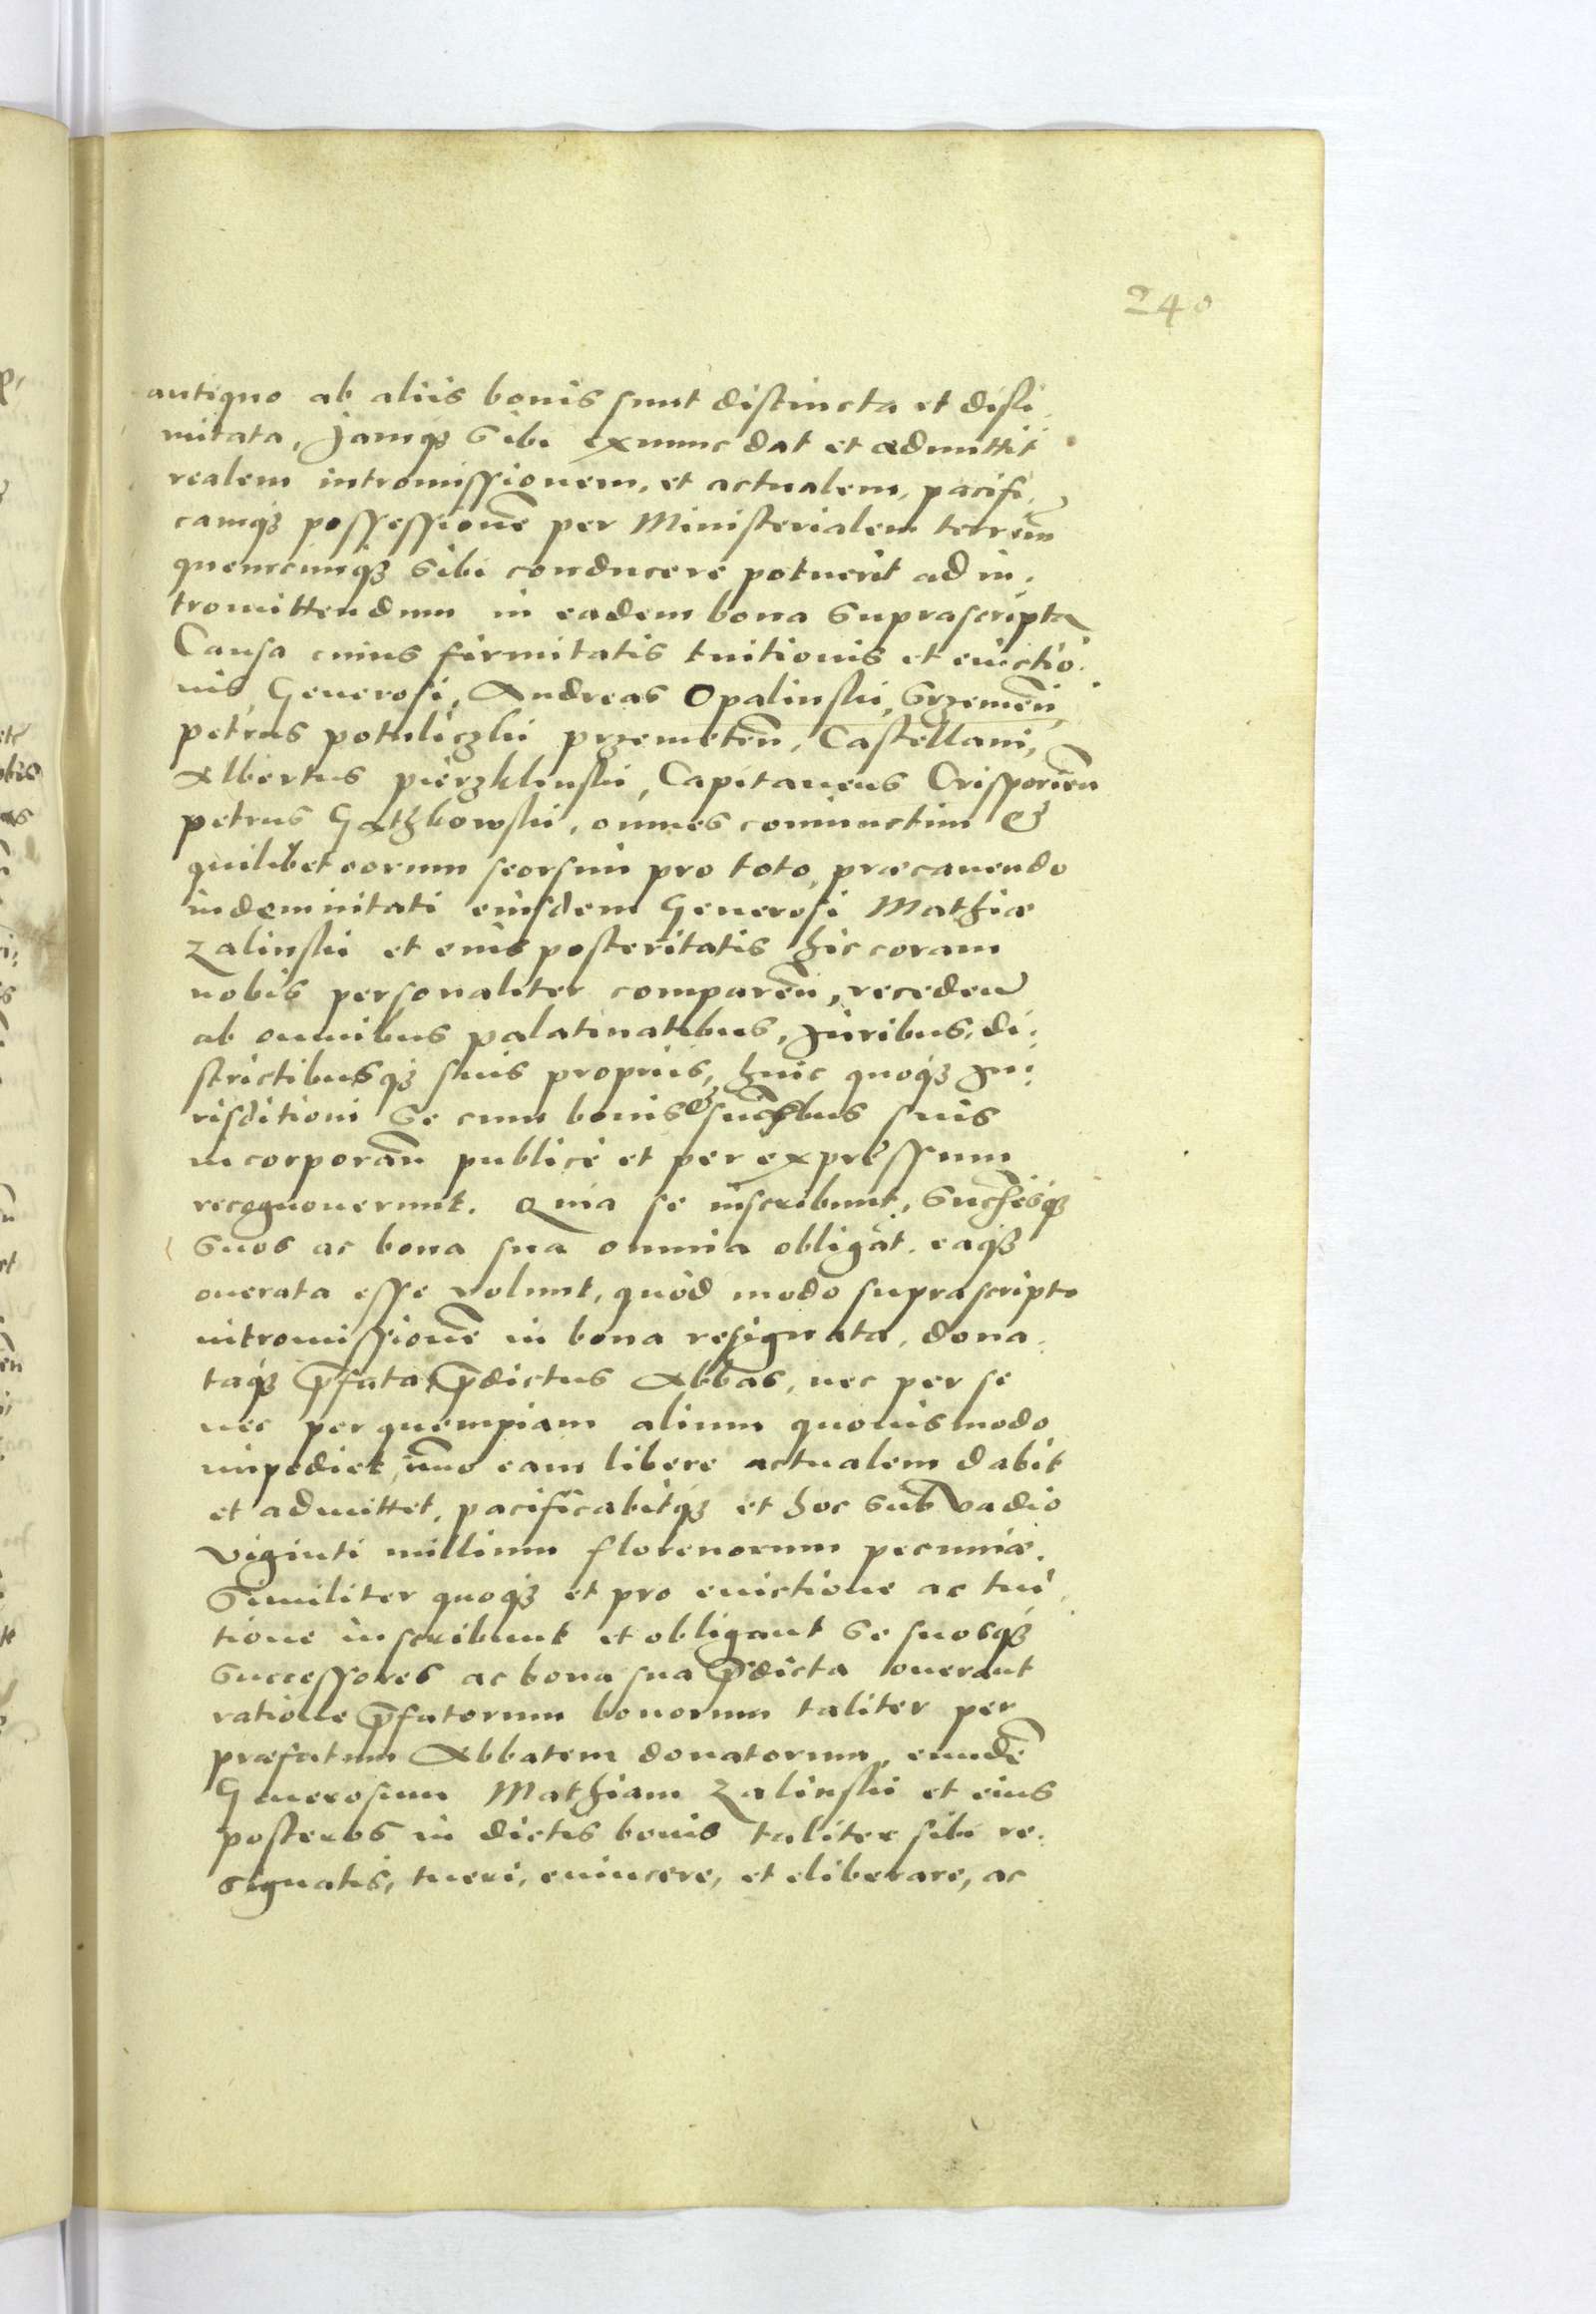 240
antiquo ab aliis bonis sunt distincta et disli,
mitata, Jamqꝫ sibi exnunc dat et admittit
realem intromissionem, et actualem, pacifi,
camqꝫ possessionē per Ministerialem terrēm
quemcunqꝫ sibi conducere potuerit ad in,
tromittendum in eadem bona suprascripta
Causa cuius firmitatis tuitionis et euictio,
nis, Generosi, Andreas Opalinski, Srzemēn,
petrus potuliczki przemetēn, Castellani,
Albertus pierzklinski, Capitaneus Crisporiēn
petrus Gatzkowski, omnes coniunctim &
quilibet eorum seorsim pro toto, præcauendo
indemnitati eiusdem Generosi Mathiæ
Zalinski et eius posteritatis hic coram
nobis personaliter comparēn, recedeñ
ab omnibus palatinatibus, Juribus, di,
strictibusqꝫ suis propriis, huic quoqꝫ Ju,
risditioni se cum bonis & suc̄bus suis
incorporān publice et per expressum
recognouerunt. Quia se inscribunt, suc̄esqꝫ
suos ac bona sua omnia obligāt, eaqꝫ
onerata esse volunt, quod modo suprascripto
intromissionē in bona resignata, dona,
taqꝫ p̄fata, p̄dictus Abbas, nec per se
nec per quempiam alium quouismodo
impediet, im̄o eam libere actualem dabit
et admittet, pacificabitqꝫ et hoc sub vadio
viginti millium florenorum pecuniæ.
Similiter quoqꝫ et pro euictione ac tui,
tione inscribunt et obligant se suosqꝫ
successores ac bona sua p̄dicta onerant
ratione p̄fatorum bonorum taliter per
præfatum Abbatem donatorum, eundē
Generosum Mathiam Zalinski et eius
posteros in dictis bonis taliter sibi re,
signatis, tueri, euincere, et eliberare, ac